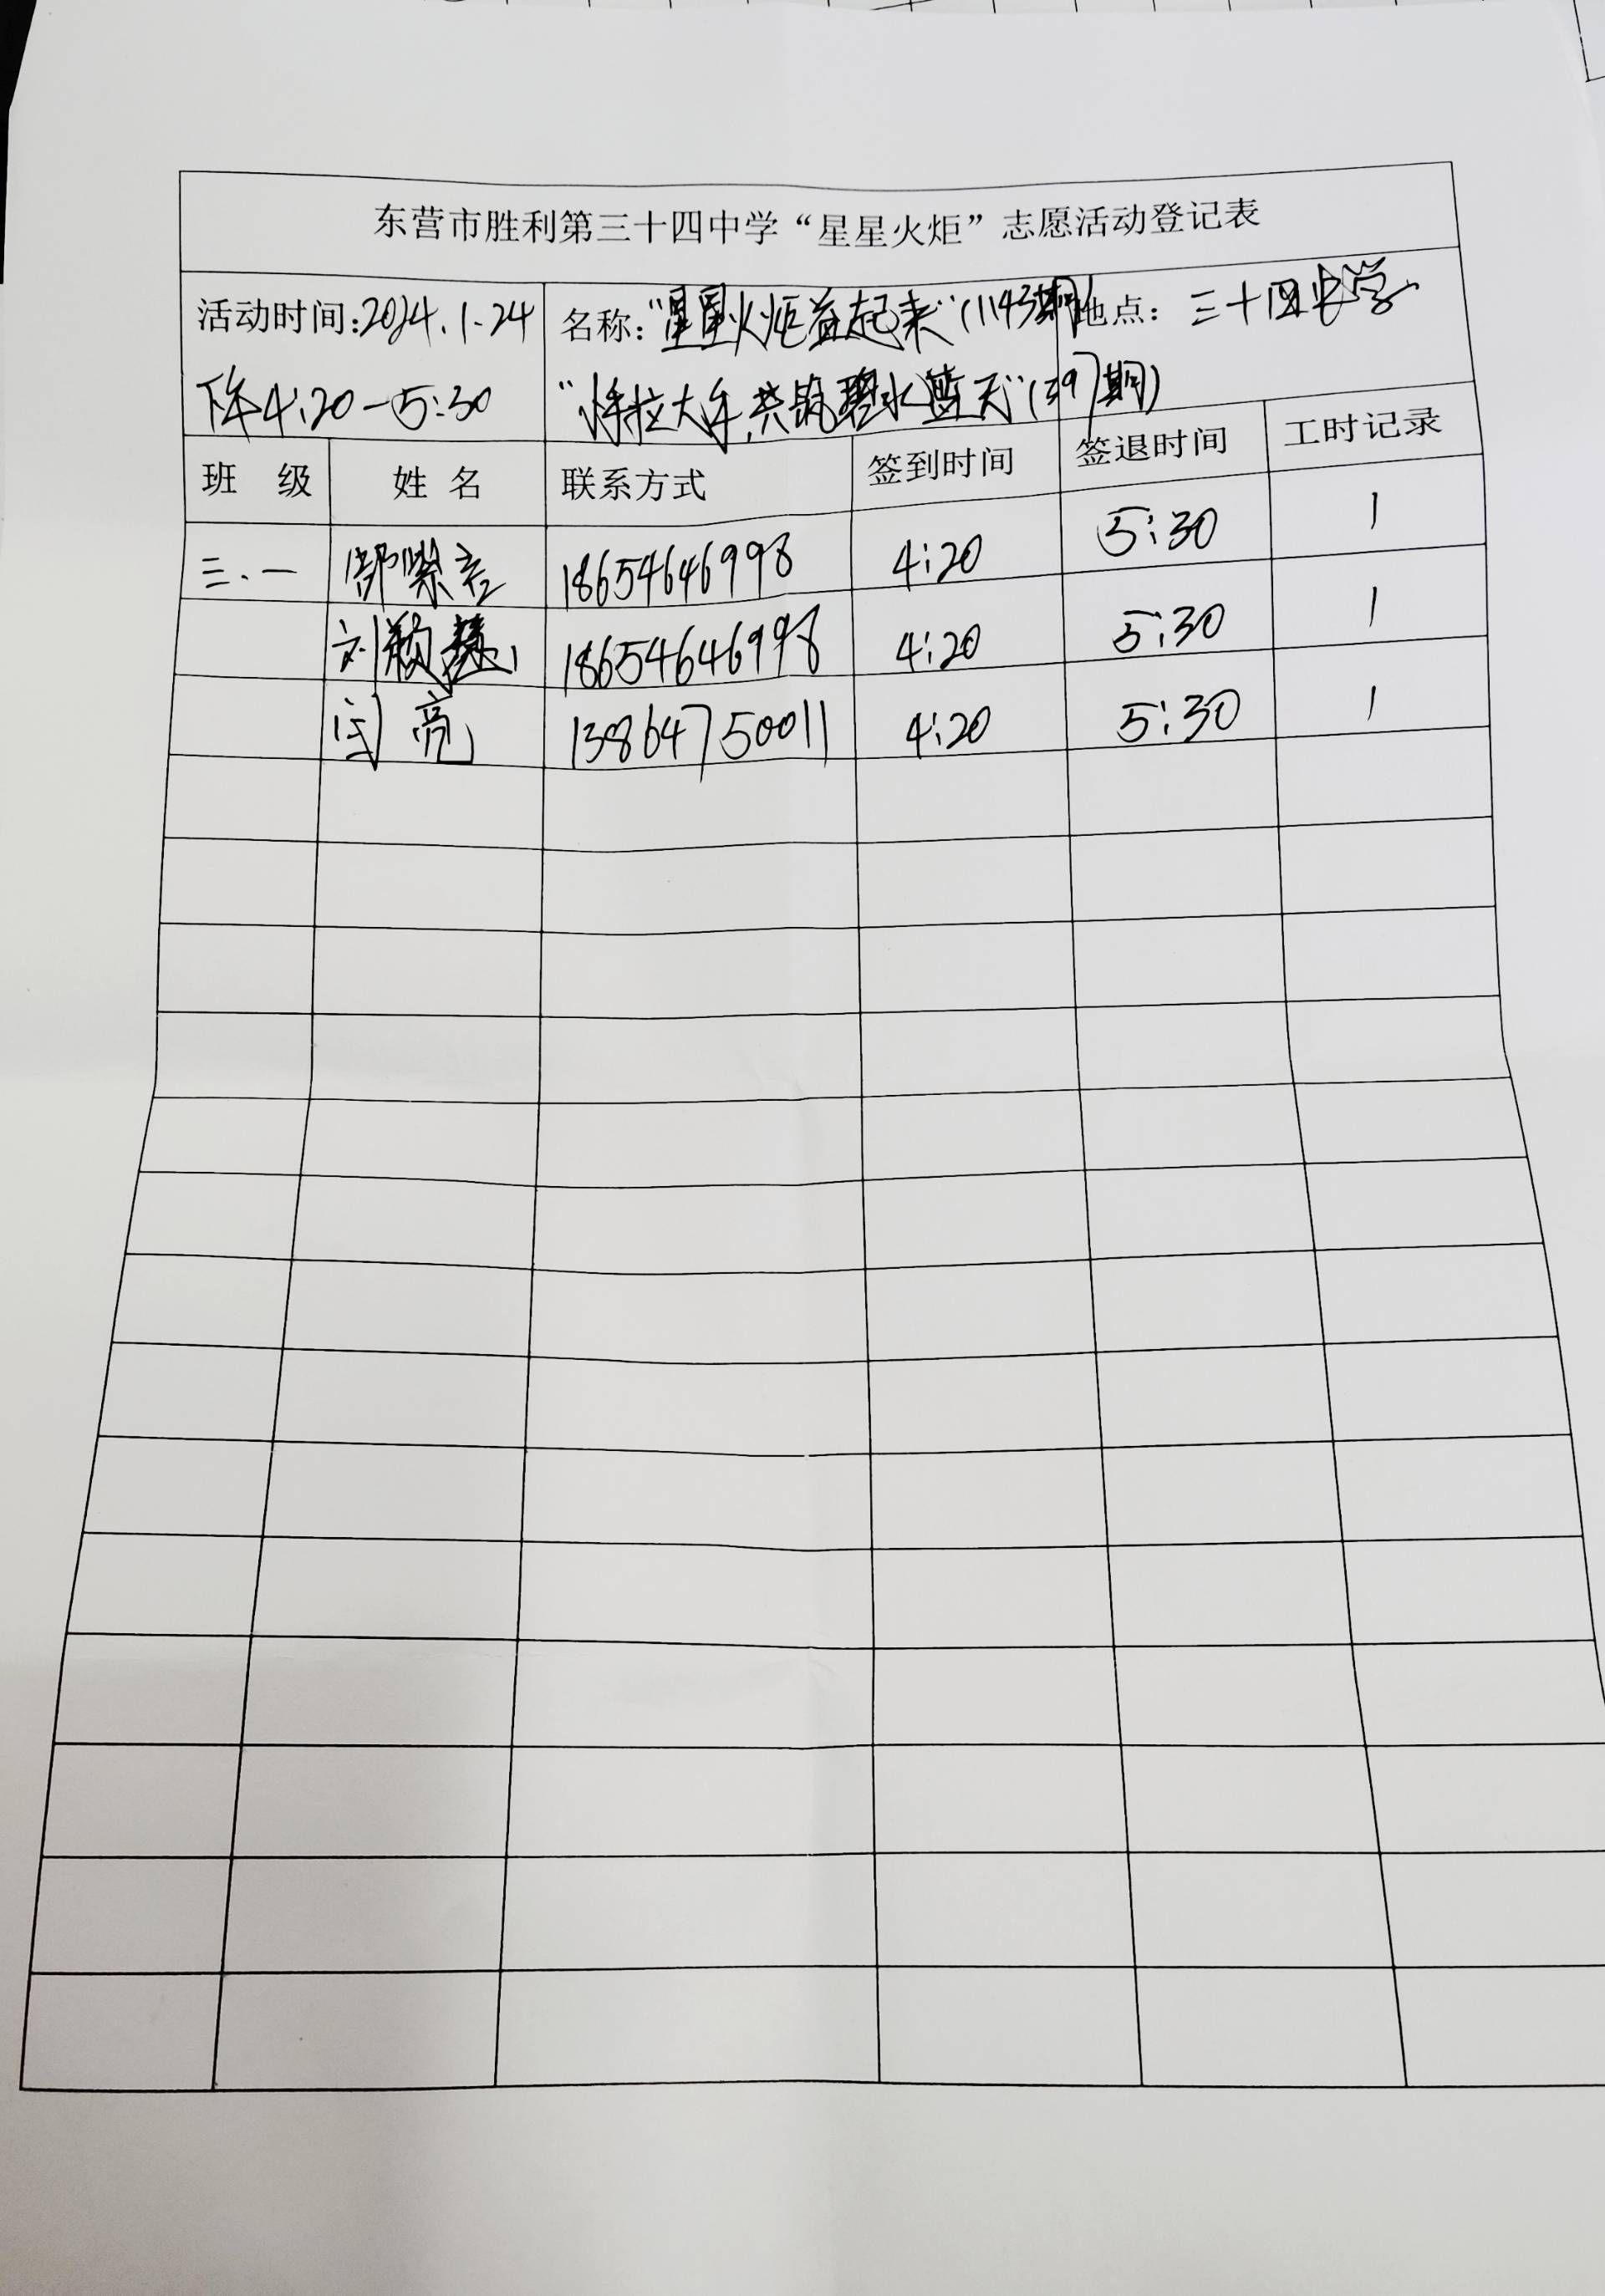 东营市胜利第三十四中学“星星火炬”志愿活动登记表
活动时间:2024.1.24 名称:“星星火炬益起来”(1143期) 地点: 三十四中学
下午4:20-5:30 “手拉大手,共筑碧水蓝天”(397期)
班 级 姓 名 联系方式 签到时间 签退时间 工时记录
三.一 18654646998 4:20 5:30 1
刘 18654646998 4:20 5:30 1
闫亮 13864750011 4:20 5:30 1